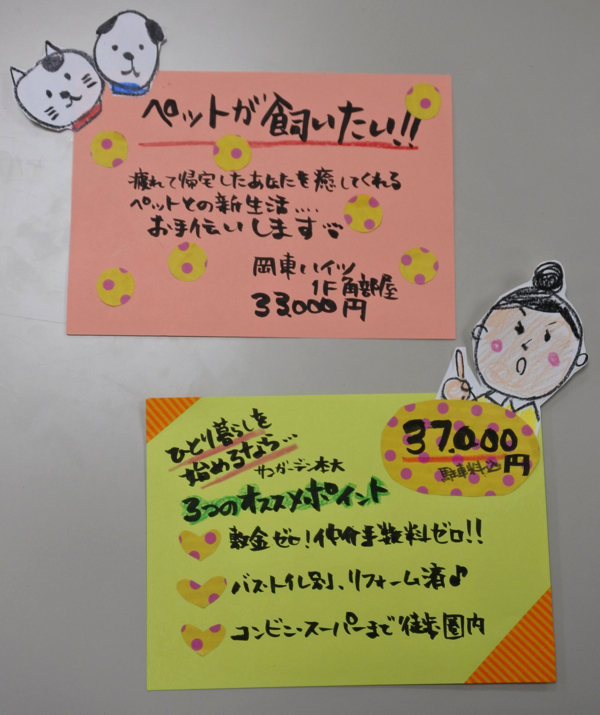 ペットが飼いたい!!
疲れて帰宅したあなたを癒してくれる
ペットとの新生活....
お手伝いします
岡東ハイツ
1F角部屋
33,000円
ひとり暮らしを
始めるなら...
サンガーデン本大
37,000円
駐車料込
3つのオススメポイント
敷金ゼロ!仲介手数料ゼロ!!
バス・トイレ別、リフォーム済♪
コンビニ・スーパーまで徒歩圏内